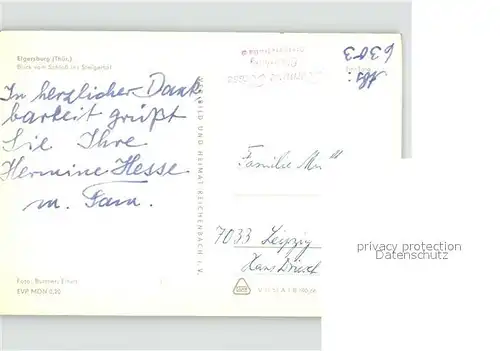 Elgersburg (Thür.)
Blick vom Schloß ins Steigertal
In herzlicher Dank-
barkeit grüßt
Sie Ihre
Hermine Hesse
m. Fam.
Foto: Brunner,
EVP MDN 0,20
BILD UND HEIMAT REICHENBACH I. V.
Abs:
6303
Familie
7033 Leipzig
Hans
privacy protection
Datenschutz